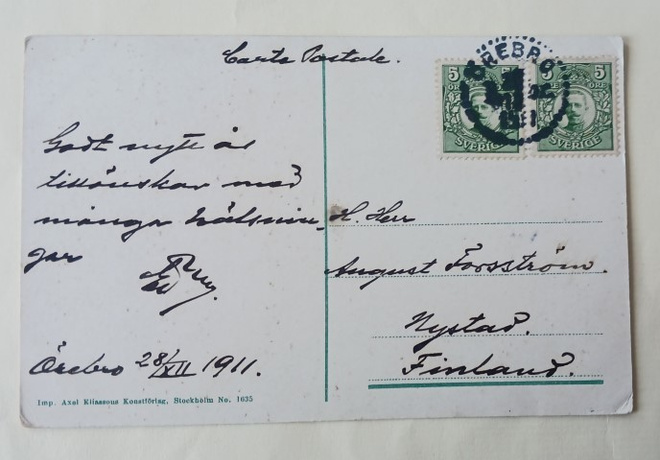 Carte Postale.
ÖREBRO
1911
5 5
ÖRE
SVERIGE
5
ÖRE
SVERIGE
Godt nytt år
tillönskar med
många hälsnin
gar
H. Herr
August Forsström.
Nystad.
Finland.
Örebro 28/XII 1911.
Imp. Axel Eliassons Konstförlag, Stockholm No. 1635